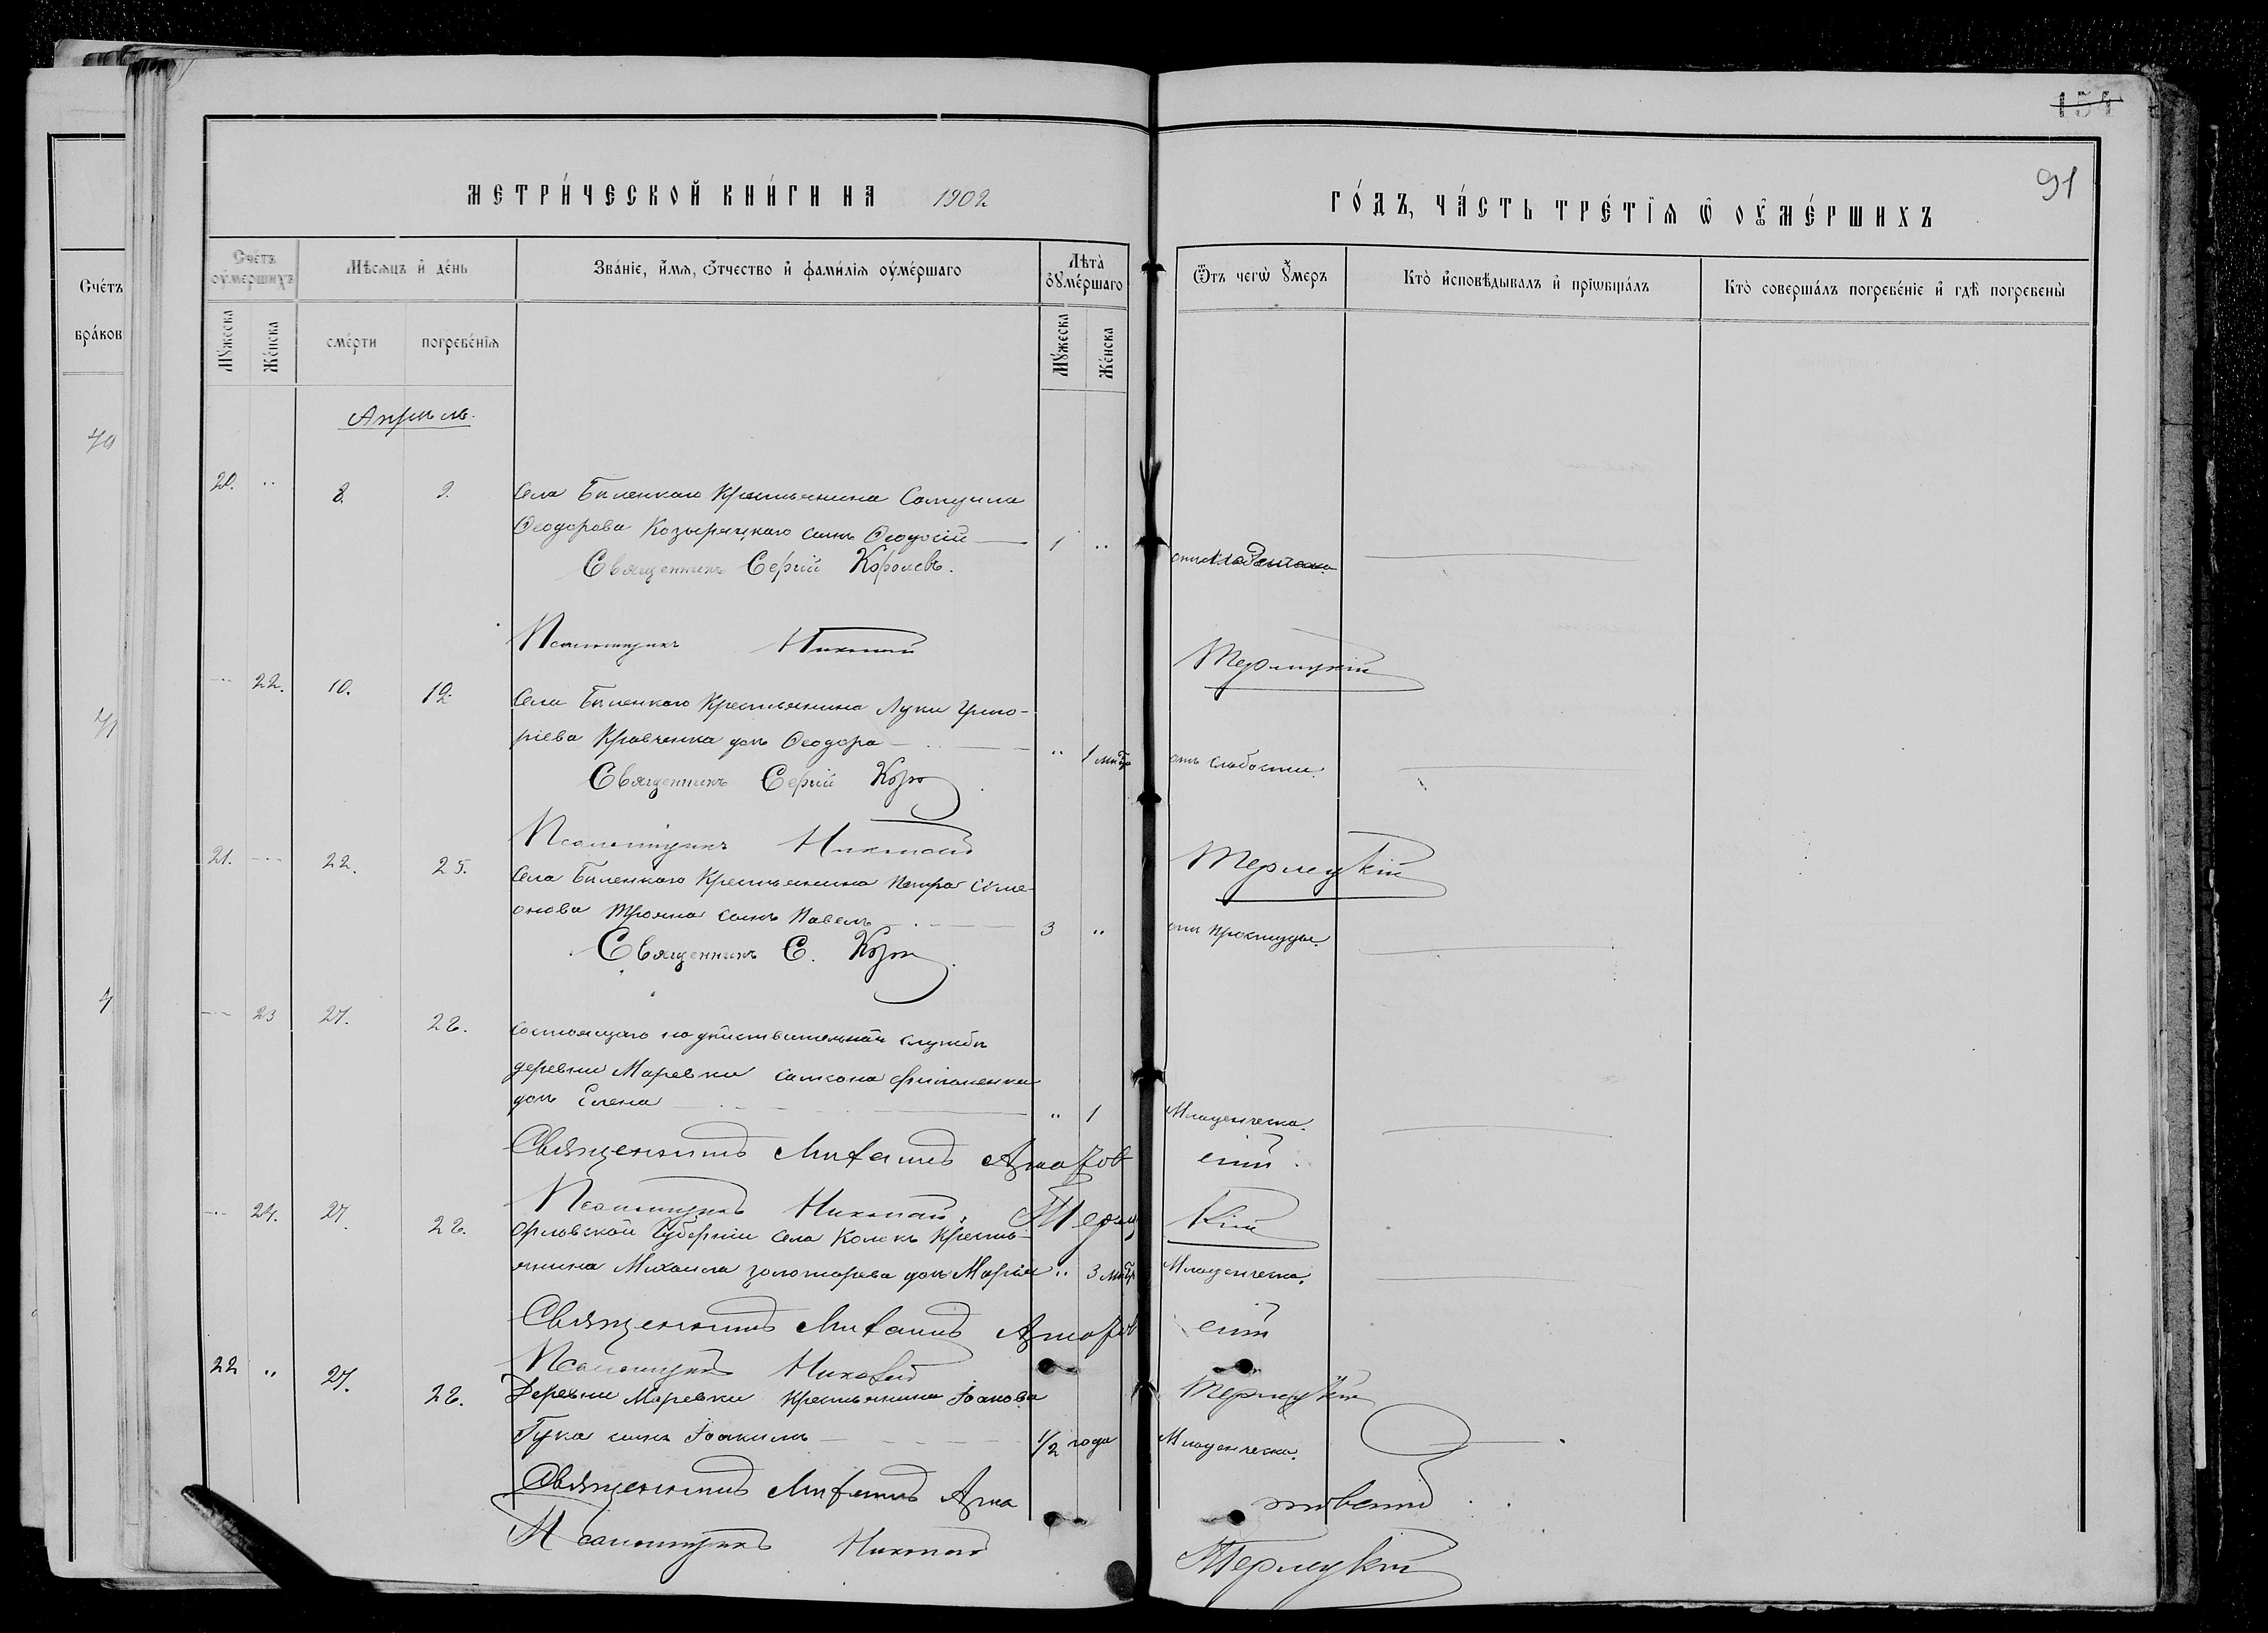 154
91
МЕТРИ́ЧЕСКОЙ КНИ́ГИ НА 1902
ГО́ДЪ, ЧА́СТЬ ТРЕ́ТЇѦ Ѡ ОУ҆МЕ́РШИХЪ
Сче́тъ
бра́ков
40
41
4
Сче́тъ оу҆ме́ршихъ
Мꙋ́жеска
Же́нска
Мѣ́сѧцъ и҆ де́нь
сме́рти
погребе́нїѧ
Зва́нїе, и҆́мѧ, ѻ҆́тчество и҆ фами́лїѧ оу҆ме́ршаго
Лѣ́та ᲂу҆ме́ршаго
Мꙋ́жеска
Же́нска
Ѿ чегѡ̀ ᲂу҆́меръ
Кто̀ и҆сповѣ́дывалъ и҆ прїѡбща́лъ
Кто̀ соверша́лъ погребе́нїе и҆ гдѣ̀ погребены̀
Апрѣль.
20. " 8. 9. Села Бѣленкаго Крестьянина Самуила
Ѳеодорова Козырецкаго сынъ Ѳеодосій 1 "
Священникъ Сергій Королевъ.
Псаломщикъ Николай Терлецкій
22. 10. 12. Села Бѣленкаго Крестьянина Луки Григо-
ріева Кравченка дочь Ѳеодора " 1 мѣс отъ слабости.
Священникъ Сергій Коро
Псаломщикъ Николай Терлецкій
21. 22. 25. Села Бѣленкаго Крестьянина Петра Симе-
онова Трояна сынъ Павелъ 3 " отъ простуды.
Священникъ С. Коро
23 27. 28. Состоящаго на дѣйствительной службѣ
деревни Маревки Филоненка
дочь Елена " 1 Младенческа.
Священникъ Михаилъ
Псаломщикъ Николай Терлецкій
24. 27. 28. Орловской Губерніи села Крестья-
янина Михаила Золотарева дочь Марія " 3 мѣс Младенческа.
Священникъ Михаилъ
Псаломщикъ Николай Терлецкій
22 " 27. 28. Деревни Маревки Крестьянина Іакова
Гука сынъ Іоакимъ 1/2 года Младенческа.
Священникъ Михаилъ
Псаломщикъ Николай Терлецкій